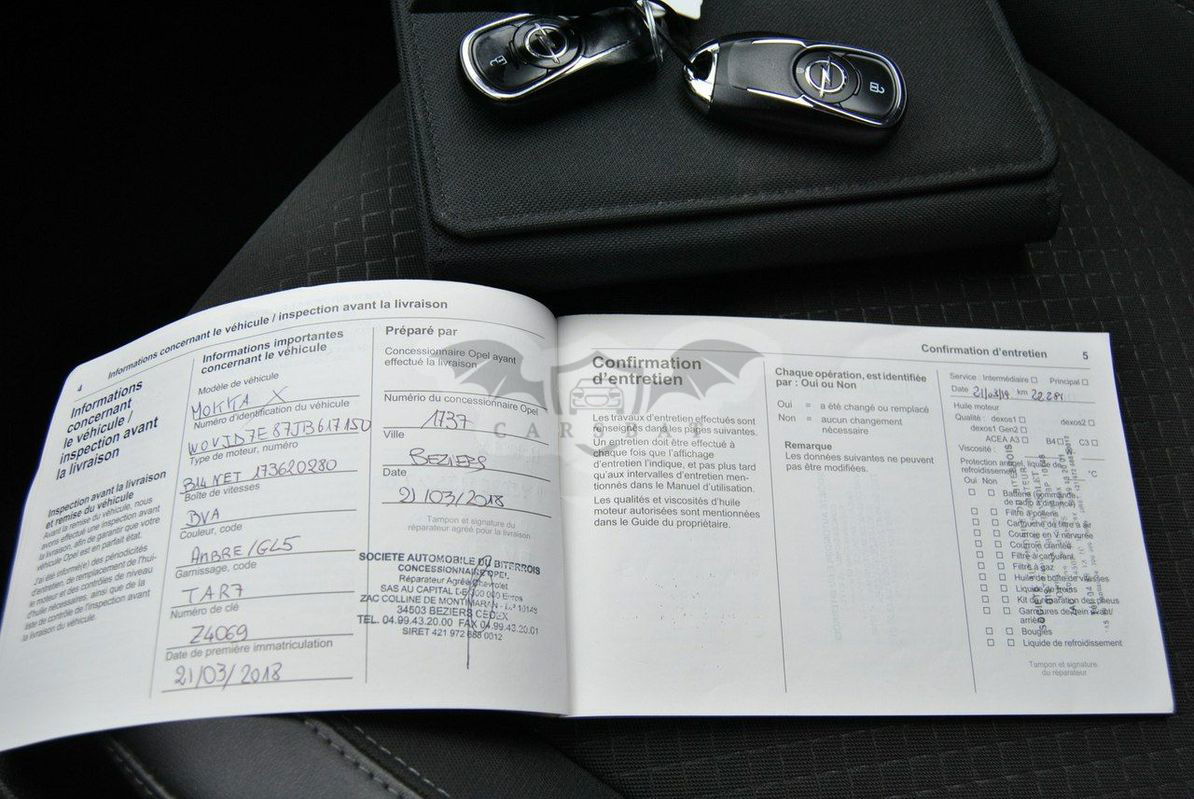 4 Informations concernant le véhicule / inspection avant la livraison
Informations
concernant
le véhicule /
inspection avant
la livraison
Inspection avant la livraison
et remise du véhicule
Avant la remise du véhicule, nous
avons effectué une inspection avant
la livraison, afin de garantir que votre
véhicule Opel est en parfait état.
J'ai été informé(e) des périodicités
d'entretien, de remplacement de l'hui-
le moteur et des contrôles de niveau
d'huile nécessaires, ainsi que de la
liste de contrôle de l'inspection avant
la livraison du véhicule.
Informations importantes
concernant le véhicule
Modèle de véhicule
MOKKA X
Numéro d'identification du véhicule
W0VJD7E87JB617150
Type de moteur, numéro
B14NET 173620280
Boîte de vitesses
BVA
Couleur, code
AMBRE/GL5
Garnissage, code
TAR7
Numéro de clé
Z4069
Date de première immatriculation
21/03/2018
Préparé par
Concessionnaire Opel ayant
effectué la livraison
Numéro du concessionnaire Opel
1737
Ville
BEZIERS
Date
21/03/2018
Tampon et signature du
réparateur agréé pour la livraison
SOCIETE AUTOMOBILE DU BITERROIS
CONCESSIONNAIRE OPEL
Réparateur Agréé Chevrolet
SAS AU CAPITAL DE 300 000 Euros
ZAC COLLINE DE MONTIMARAN - B.P 10148
34503 BEZIERS CEDEX
TEL. 04.99.43.20.00 FAX 04.99.43.20.01
SIRET 421 972 688 0012
CARSBAT
Confirmation d'entretien 5
Confirmation
d'entretien
Les travaux d'entretien effectués sont
renseignés dans les pages suivantes.
Un entretien doit être effectué à
chaque fois que l'affichage
d'entretien l'indique, et pas plus tard
qu'aux intervalles d'entretien men-
tionnés dans le Manuel d'utilisation.
Les qualités et viscosités d'huile
moteur autorisées sont mentionnées
dans le Guide du propriétaire.
Chaque opération, est identifiée
par : Oui ou Non
Oui = a été changé ou remplacé
Non = aucun changement
nécessaire
Remarque
Les données suivantes ne peuvent
pas être modifiées.
Service : Intermédiaire Principal
Date 21/03/19 km 22 281
Huile moteur
Qualité : dexos1 dexos2
dexos1 Gen2
ACEA A3 B4 C3
Viscosité :
Protection antigel, liquide de
refroidissement °C
Oui Non
Batterie (commande
de radio à distance)
Filtre à pollens
Cartouche de filtre à air
Courroie en V nervurée
Courroie crantée
Filtre à carburant
Filtre à gaz
Huile de boîte de vitesses
Liquide de freins
Kit de réparation des pneus
Garnitures de frein avant/
arrière
Bougies
Liquide de refroidissement
Tampon et signature
du réparateur